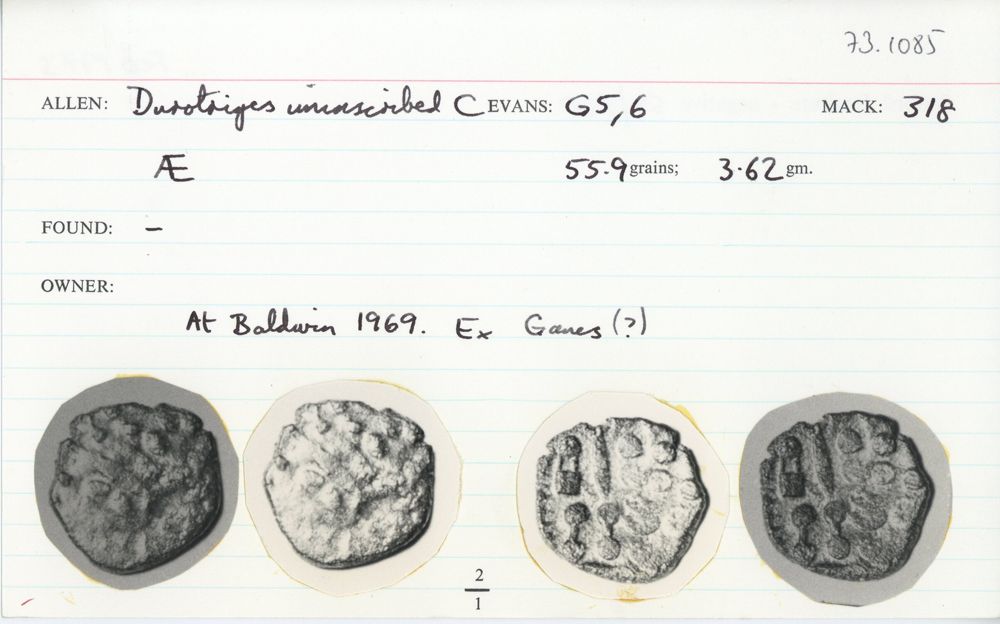 73.1085
ALLEN: Durotriges uninscribed C EVANS: G5,6 MACK: 318
Æ 55.9 grains; 3.62 gm.
FOUND: –
OWNER:
At Baldwin 1969. Ex Ganes (?)
2
1